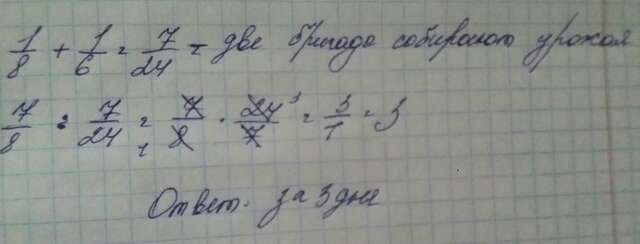 1/8 + 1/6 = 7/24 = две бригада собирают урожая
7/8 : 7/24 = 7/8 · 24/7 = 3/1 = 3
Ответ. за 3 дня